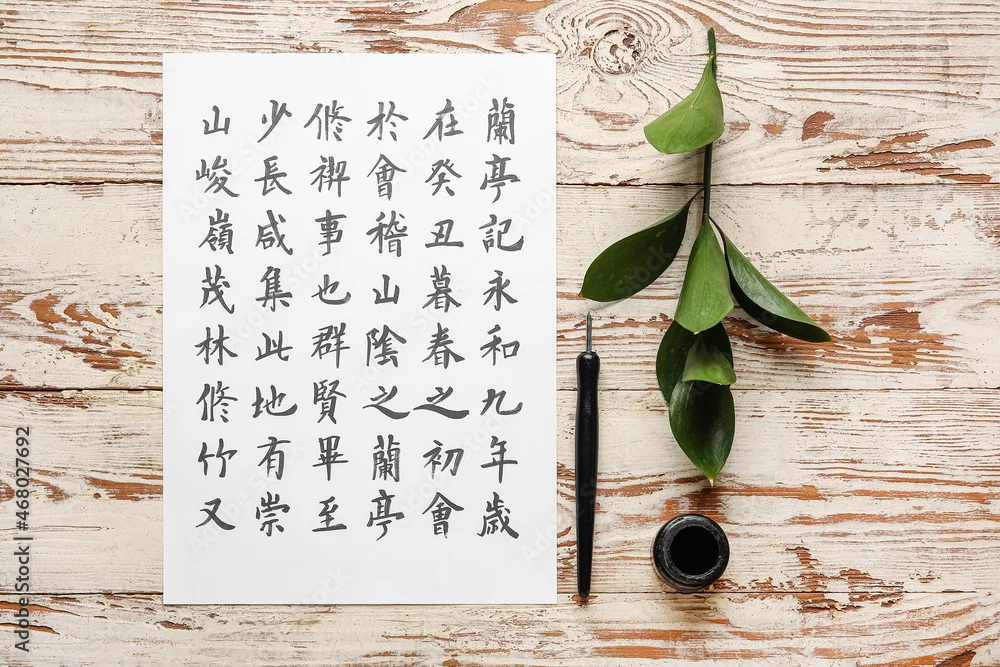 蘭亭記永和九年歲
在癸丑暮春之初會
於會稽山陰之蘭亭
修禊事也群賢畢至
少長咸集此地有崇
山峻嶺茂林修竹又
Adobe Stock | #468027692